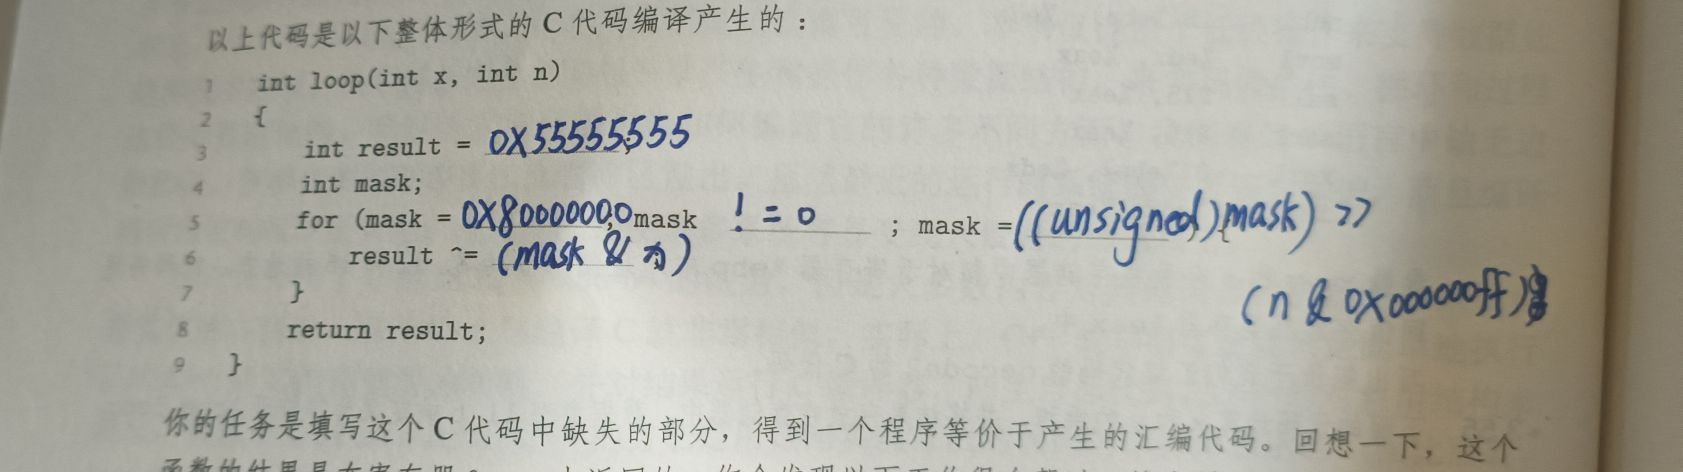 以上代码是以下整体形式的 C 代码编译产生的：
1 int loop(int x, int n)
2 {
3 int result = 0X55555555;
4 int mask;
5 for (mask = 0X80000000; mask != 0 ; mask = ((unsigned)mask) >> {
(n & 0X000000ff)
6 result ^= (mask & );
7 }
8 return result;
9 }
你的任务是填写这个 C 代码中缺失的部分，得到一个程序等价于产生的汇编代码。回想一下，这个